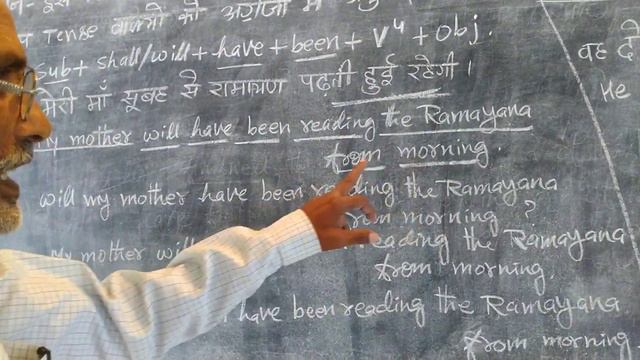 Tense वाक्यों को अंग्रेजी में
Sub + shall/will + have + been + V⁴ + Obj.
मेरी माँ सूबह से रामायण पढ़ती हुई रहेगी।
My mother will have been reading the Ramayana
from morning.
will my mother have been reading the Ramayana
from morning ?
My mother will reading the Ramayana
from morning.
have been reading the Ramayana
from morning
वह दो
He